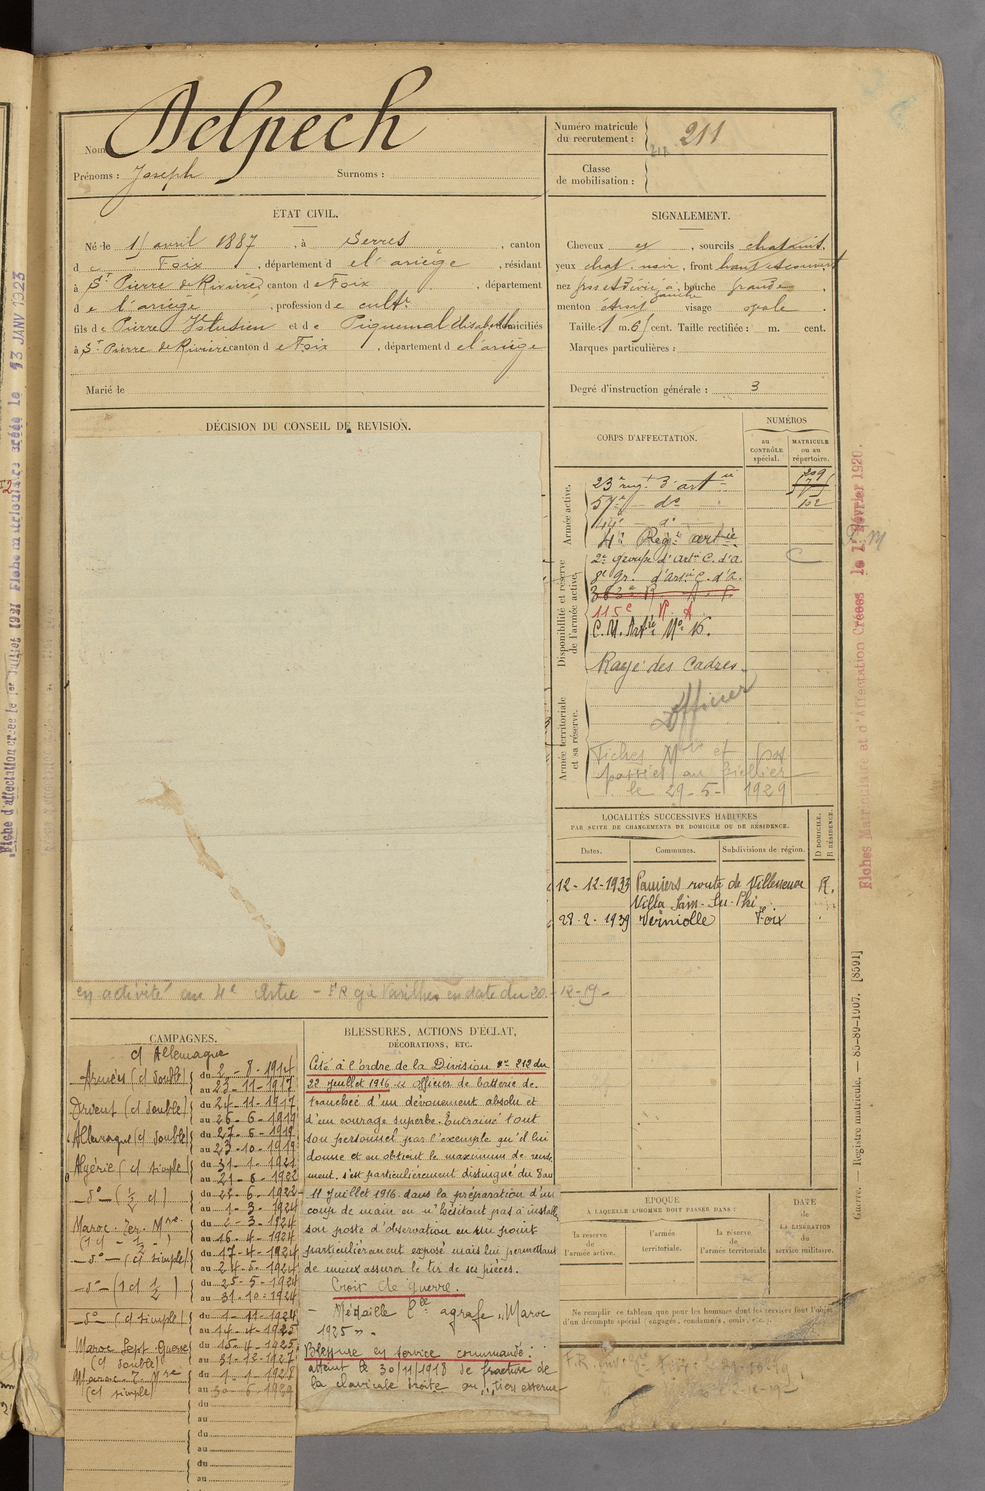 Nom Delpech
Prénoms : Joseph Surnoms :
Numéro matricule du recrutement : 211
Classe de mobilisation :
ÉTAT CIVIL.
Né le 15 avril 1887, à Serres, canton
de Foix, département de l'ariège, résidant
à St Pierre de Rivière, canton de Foix, département
de l'ariège, profession de cultr
fils de Pierre et de Piquemal Elisabeth domiciliés
à St Pierre de Rivière canton de Foix, département de l'ariège
Marié le
SIGNALEMENT.
Cheveux et, sourcils chatains
yeux chat. noir, front haut découvert
nez gros dévié à gauche, bouche grande
menton étroit visage ovale.
Taille : 1 m. 65 cent. Taille rectifiée : m. cent.
Marques particulières :
Degré d'instruction générale : 3
DÉCISION DU CONSEIL DE REVISION.
en activité au 4e Artie - FR gie Varilhes en date du 20-12-19-
CORPS D'AFFECTATION.
NUMÉROS
au CONTRÔLE spécial.
MATRICULE ou au répertoire.
Armée active.
23e régt d'artie 209
57e do 102
44e do
4e Regt artie
Disponibilité et réserve de l'armée active.
2e groupe d'artie C. d'a.
8e gr. d'artie C. d'a.
363e R. A.
115e R A
C. M. Artie No 16.
Rayé des Cadres.
Armée territoriale et sa réserve.
Officier
Fiches Mle et
le 29-5-1929
LOCALITÉS SUCCESSIVES HABITÉES
PAR SUITE DE CHANGEMENTS DE DOMICILE OU DE RÉSIDENCE.
D DOMICILE.
R RÉSIDENCE.
Dates. Communes. Subdivisions de région.
12-12-1933 Pamiers route de Villeneuve R.
Villa Sam-Su-Phi
28-2-1939 Verniolle Foix
CAMPAGNES.
c/ Allemagne
Armées (c/ double) du 2-8-1914
au 23-11-1917
Orient (c/ double) du 24-11-1917
au 26-6-1919
Allemagne (c/ double) du 27-6-1919
au 23-10-1919
Algérie (c/ simple) du 31-1-1921
au 21-6-1922
-do- (1/2 c/) du 22-6-1922
au 1-3-1924
Maroc. Ter. Mre du 6-3-1924
(1 c/ - 1/2 -) au 16-4-1924
-do- (c/ simple) du 17-4-1924
au 24-5-1924
-do- (1 c/ 1/2) du 25-5-1924
au 31-10-1924
-do- (c/ simple) du 1-11-1924
au 14-4-1925
Maroc Sept Guerre du 15-4-1925
(c/ double) au 31-12-1927
Maroc T. Mre du 1-1-1928
(c/ simple) au 30-6-1929
du
au
du
au
du
au
du
au
BLESSURES, ACTIONS D'ÉCLAT,
DÉCORATIONS, ETC.
Cité à l'ordre de la Division No 212 du
22 juillet 1916 « officier de batterie de
tranchée d'un dévouement absolu et
d'un courage superbe. Entraine tout
son personnel par l'exemple qu'il lui
donne et en obtient le maximum de rende-
ment. s'est particulièrement distingué du 8 au
11 juillet 1916. dans la préparation d'un
coup de main en n'hésitant pas à installer
son poste d'observation en un point
particulièrement exposé mais lui permettant
de mieux assurer le tir de ses pièces.
Croix de guerre.
- Médaille Cle agrafe « Maroc
1925 » -
Blessure en service commandé :
atteint le 30/11/1918 de fracture de
la clavicule droite au tiers externe
EPOQUE
A LAQUELLE L'HOMME DOIT PASSER DANS :
la réserve de l'armée active.
l'armée territoriale.
la réserve de l'armée territoriale
DATE de LA LIBÉRATION du service militaire.
Ne remplir ce tableau que pour les hommes dont les services font l'objet
d'un décompte spécial (engagés, condamnés, omis, etc.).
Guerre. — Registre matricule. — 85-89-1907. [8591]
Fiches Matricule et d'Affectation Créées le 1er Février 1920.
Fiche d'affectation créée le 1er Juillet 1921 Fiche matriculaire créée le 13 JANV 1923